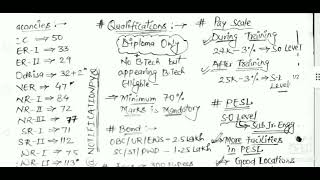 acancies :-
IC → 50
ER-I → 33
ER-II → 29
Odhisa → 32+2*
NER → 47*
NR-I → 84
NR-II → 72
NR-III → 77
SR-I → 71
SR-II → 112
WR-I → 75
WR-II → 113*
NOTIFICATION
# Qualifications :-
Diploma Only
No BTech but
appearing BTech
Eligible -
→ Minimum 70%
Marks is Mandatory
# Bond :-
OBC/UR/EWS - 2.5 Lakh
SC/ST/PWD - 1.25 Lakh
# Pay Scale
During Training
24K - 3% → S0 Level
After Training
25K - 3% → S-1
Level
# PESL
S-0 LEVEL
Sub Jr. Engg
More Facilities
in PESL
Good Locations